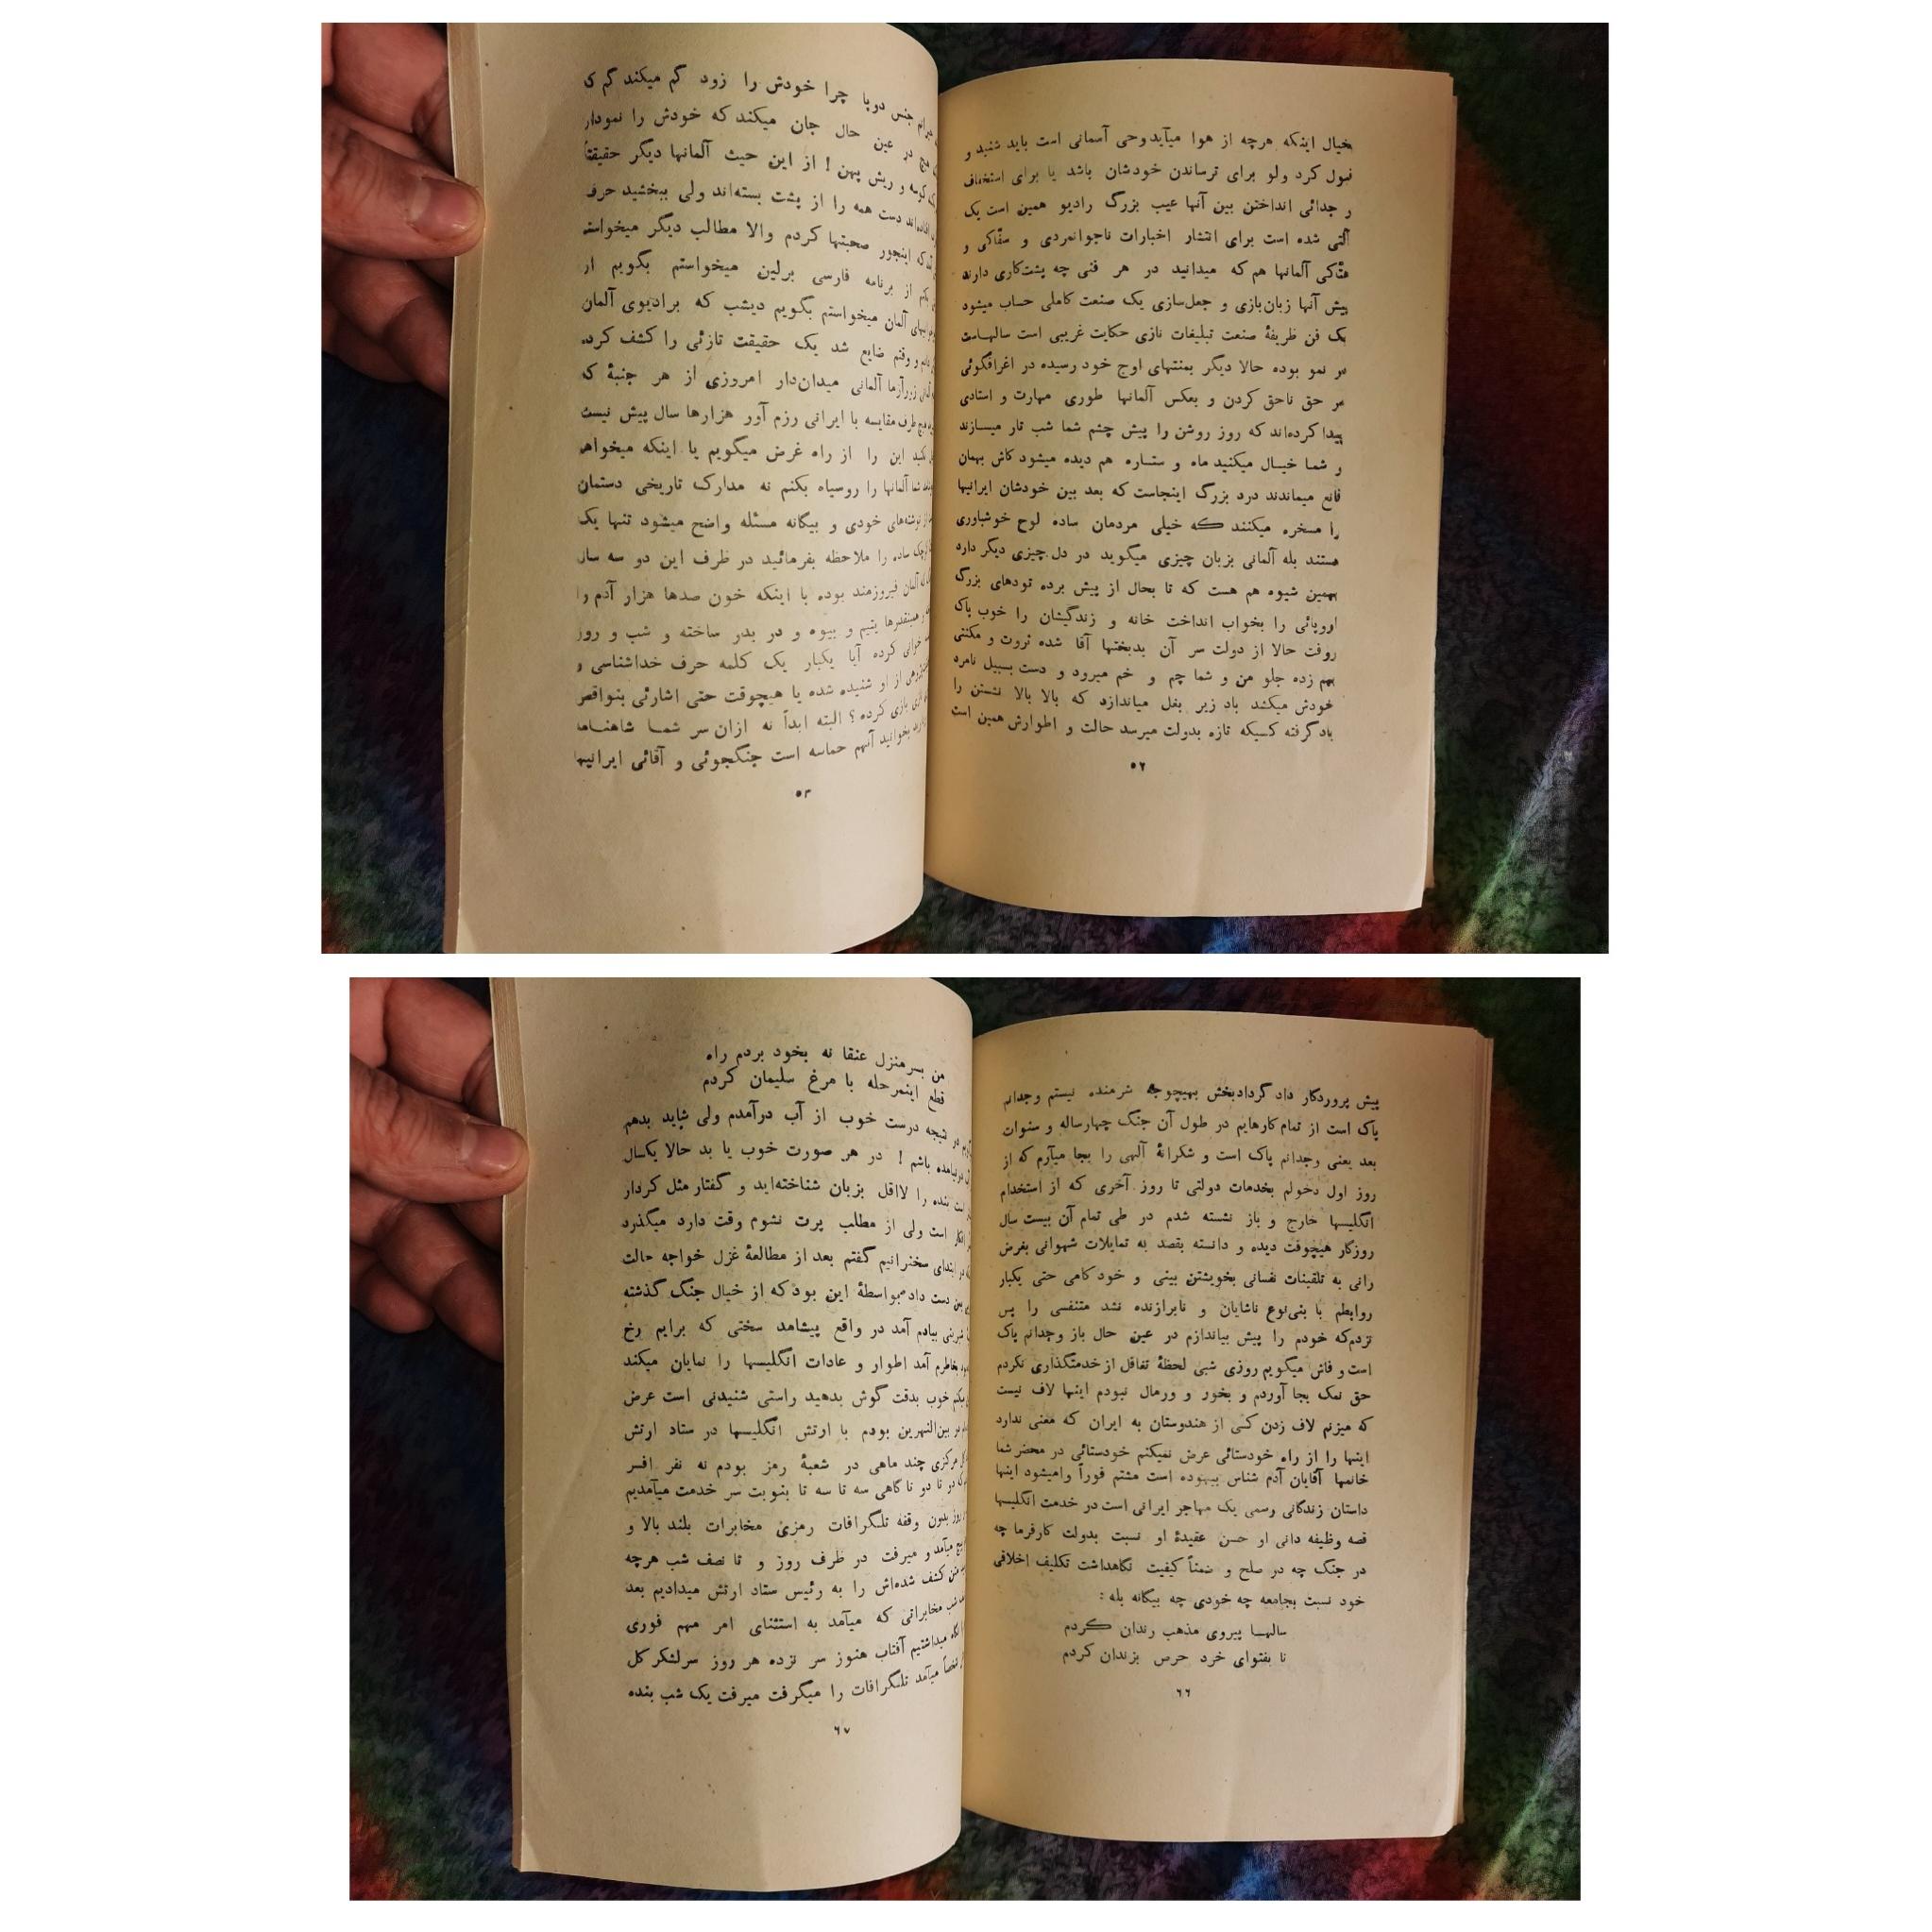 بخیال اینکه هرچه از هوا میآید وحی آسمانی است باید شنید و
قبول کرد ولو برای ترساندن خودشان باشد یا برای استخفاف
و جدائی انداختن بین آنها عیب بزرگ رادیو همین است یک
آلتی شده است برای انتشار اخبارات ناجوانمردی و سفاکی و
هتاکی آلمانها هم که میدانید در هر فنی چه پشت‌کاری دارند
پیش آنها زبان‌بازی و جعل‌سازی یک صنعت کاملی حساب میشود
یک فن ظریفهٔ صنعت تبلیغات نازی حکایت غریبی است سالهاست
در نمو بوده حالا دیگر بمنتهای اوج خود رسیده در اغراقگوئی
در حق ناحق کردن و بعکس آلمانها طوری مهارت و استادی
پیدا کرده‌اند که روز روشن را پیش چشم شما شب تار میسازند
و شما خیال میکنید ماه و ستاره هم دیده میشود کاش بهمان
قانع میماندند درد بزرگ اینجاست که بعد بین خودشان ایرانیها
را مسخره میکنند که خیلی مردمان ساده لوح خوشباوری
هستند بله آلمانی بزبان چیزی میگوید در دل چیزی دیگر دارد
بهمین شیوه هم هست که تا بحال از پیش برده تودهای بزرگ
اروپائی را بخواب انداخت خانه و زندگیشان را خوب پاک
روفت حالا از دولت سر آن بدبختها آقا شده ثروت و مکنتی
بهم زده جلو من و شما چم و خم میرود و دست بسبیل نامرد
خودش میکشد باد زیر بغل میاندازد که بالا بالا نشستن را
یاد گرفته کسیکه تازه بدولت میرسد حالت و اطوارش همین است
۵۲
جنس دوپا چرا خودش را زود گم میکند گم ک
در عین حال جان میکند که خودش را نمودار
کوسه و ریش پهن ! از این حیث آلمانها دیگر حقیقتاً
دست همه را از پشت بسته‌اند ولی ببخشید حرف
که اینجور صحبتها کردم والا مطالب دیگر میخواستم
از برنامه فارسی برلین میخواستم بگویم از
آلمان میخواستم بگویم دیشب که برادیوی آلمان
و وقتم ضایع شد یک حقیقت تازئی را کشف کرد
زورآزما آلمانی میدان‌دار امروزی از هر جنبهٔ که
طرف مقایسه با ایرانی رزم آور هزارها سال پیش نیست
نکنید این را از راه غرض میگویم یا اینکه میخواهم
شما آلمانها را روسیاه بکنم نه مدارک تاریخی دستمان
نوشته‌های خودی و بیگانه مسئله واضح میشود تنها یک
کوچک ساده را ملاحظه بفرمائید در ظرف این دو سه سال
آلمان فیروزمند بوده با اینکه خون صدها هزار آدم را
همینقدرها یتیم و بیوه و در بدر ساخته و شب و روز
خوانی کرده آیا یکبار یک کلمه حرف خداشناسی و
از او شنیده شده یا هیچوقت حتی اشارئی بنواقص
بازی کرده؟ البته ابداً نه ازان سر شما شاهنامه
بخوانید آنهم حماسه است جنگجوئی و آقائی ایرانیها
۵۳
پیش پروردگار داد گردادبخش بهیچوجه شرمنده نیستم وجدانم
پاک است از تمام کارهایم در طول آن جنگ چهارساله و سنوات
بعد یعنی وجدانم پاک است و شکرانهٔ آلهی را بجا میآرم که از
روز اول دخولم بخدمات دولتی تا روز آخری که از استخدام
انگلیسها خارج و باز نشسته شدم در طی تمام آن بیست سال
روزگار هیچوقت دیده و دانسته بقصد به تمایلات شهوانی بغرض
رانی به تلقینات نفسانی بخویشتن بینی و خودکامی حتی یکبار
روابطم با بنی‌نوع ناشایان و نابرازنده نشد متنفسی را پس
نزدم‌که خودم را پیش بیاندازم در عین حال باز وجدانم پاک
است و فاش میگویم روزی شبی لحظهٔ تغافل از خدمتگذاری نکردم
حق نمک بجا آوردم و بخور و ورمال نبودم اینها لاف نیست
که میزنم لاف زدن کسی از هندوستان به ایران که معنی ندارد
اینها را از راه خودستائی عرض نمیکنم خودستائی در محضر شما
خانمها آقایان آدم شناس بیهوده است مشتم فوراً وامیشود اینها
داستان زندگانی رسمی یک مهاجر ایرانی است در خدمت انگلیسها
قصه وظیفه دانی او حسن عقیدهٔ او نسبت بدولت کارفرما چه
در جنگ چه در صلح و ضمناً کیفیت نگاهداشت تکلیف اخلاقی
خود نسبت بجامعه چه خودی چه بیگانه بله :
سالها پیروی مذهب رندان کردم
تا بفتوای خرد حرص بزندان کردم
۶۶
من بسرمنزل عنقا نه بخود بردم راه
قطع اینمرحله با مرغ سلیمان کردم
در نتیجه درست خوب از آب درآمدم ولی شاید بدهم
درنیامده باشم ! در هر صورت خوب یا بد حالا یکسال
است بنده را لااقل بزبان شناخته‌اید و گفتار مثل کردار
است ولی از مطلب پرت نشوم وقت دارد میگذرد
در ابتدای سخنرانیم گفتم بعد از مطالعهٔ غزل خواجه حالت
بمن دست داد بواسطهٔ این بود که از خیال جنگ گذشته
شیرینی بیادم آمد در واقع پیشاهد سختی که برایم رخ
بخاطرم آمد اطوار و عادات انگلیسها را نمایان میکند
میکنم خوب بدقت گوش بدهید راستی شنیدنی است عرض
در بین‌النهرین بودم با ارتش انگلیسها در ستاد ارتش
مرکزی چند ماهی در شعبهٔ رمز بودم نه نفر افسر
که دو تا دو تا گاهی سه تا سه تا بنوبت سر خدمت میآمدیم
روز بدون وقفه تلگرافات رمزی مخابرات بلند بالا و
میآمد و میرفت در ظرف روز و تا نصف شب هرچه
متن کشف شده‌اش را به رئیس ستاد ارتش میدادیم بعد
شب مخابراتی که میآمد به استثنای امر مهم فوری
نگاه میداشتیم آفتاب هنوز سر نزده هر روز سرلشکر کل
شخصاً میآمد تلگرافات را میگرفت میرفت یک شب بنده
۶۷